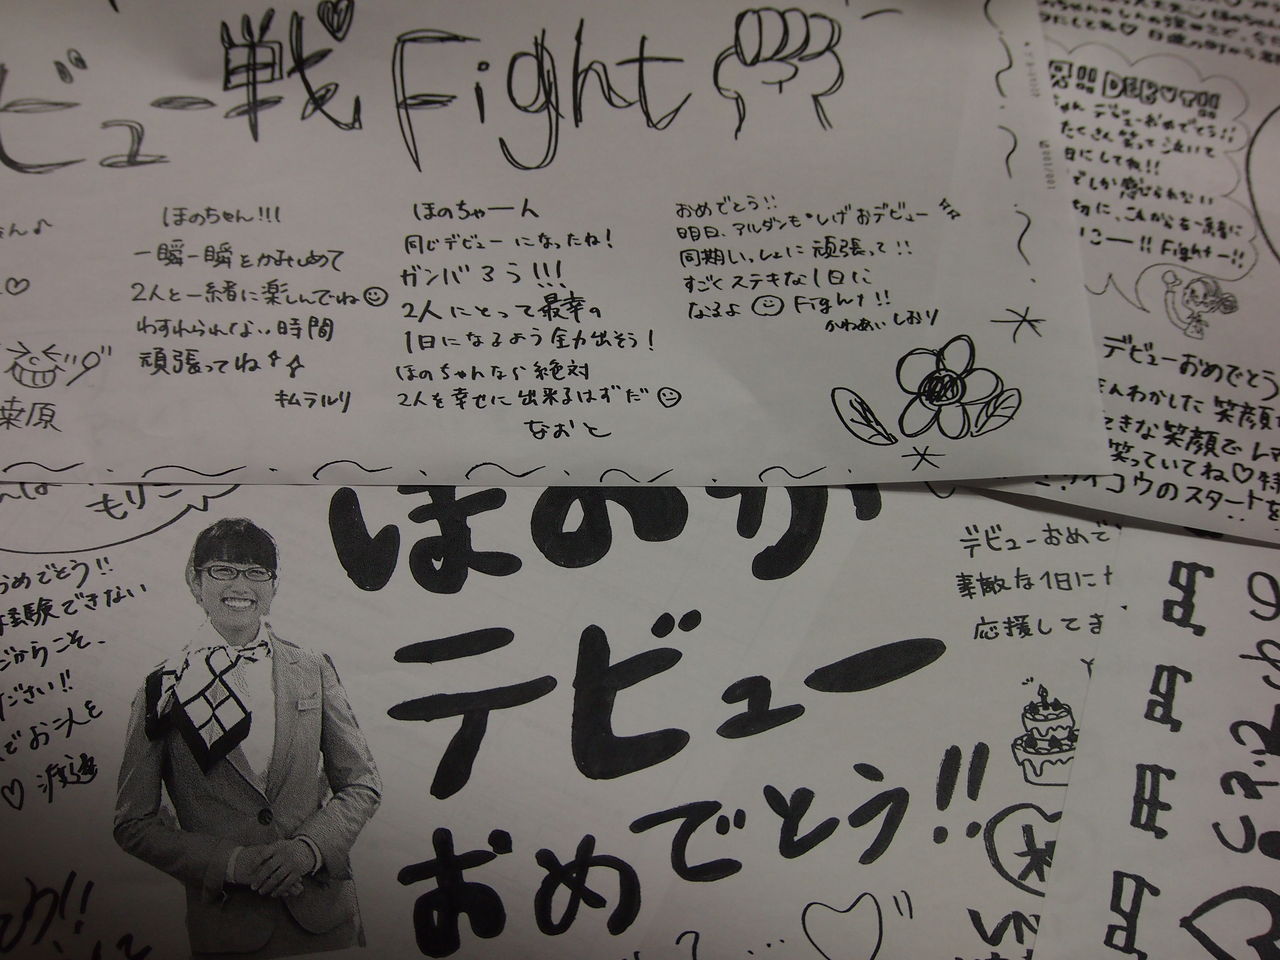 ビュー戦 Fight
ほのちゃん!!!
一瞬一瞬をかみしめて
2人と一緒に楽しんでね
わすれられない時間
頑張ってね
キムラルリ
ほのちゃーん
同じデビューになったね!
ガンバろう!!!
2人にとって最幸の
1日になるよう全力出そう!
ほのちゃんなら絶対
2人を幸せに出来るはずだ
なおと
おめでとう!!
明日、アルダンも しげおデビュー
同期いっしょに頑張って!!
すごくステキな1日に
なるよ Fight!!
かわあい しおり
桑原
DEBUT!!
デビューおめでとう!!
たくさん笑って泣いて
日にしてね!!
でしか感じられない
切に、これからも一緒に
にー!! Fightー!!
デビューおめでとう
わかした笑顔
きな笑顔で
笑っていてね♡
イコウのスタートを
もりこ
おめでとう!!
経験できない
だからこそ、
ださい!!
でお二人を
♡ 渡邉
ほのか
デビュー
おめでとう!!
デビューおめで
素敵な1日に
応援してま